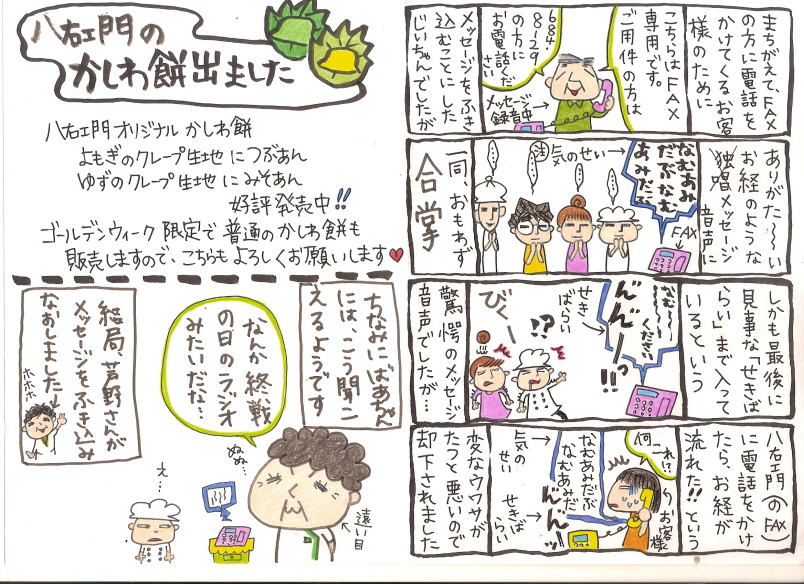 八右ェ門の
かしわ餅出ました
八右ェ門オリジナル かしわ餅
よもぎのクレープ生地 につぶあん
ゆずのクレープ生地 にみそあん
好評発売中!!
ゴールデンウィーク 限定で 普通のかしわ餅も
販売しますので、こちらも よろしくお願いします♥
まちがえて、FAX
の方に電話を
かけてくるお客
様のために
こちらはFAX
専用です。
ご用件の方は
684
8-29
の方に
お電話くだ
さい
メッセージ
録音中→
メッセージをふき
込むことにした
じいちゃんでしたが
ありがた〜〜い
お経のような
独唱メッセージ
音声に
なむあみ
だぶなむ
あみだぶ
FAX
気のせい→
一同、おもわず
合掌
しかも最後に
見事な「せきば
らい」まで入って
いるという
なむ〜〜
ください
んんーっ!!
せき
ばらい
!?
びくー
驚愕のメッセージ
音声でしたが…
八右ェ門(のFAX)
に電話をかけ
たら、お経が
流れた!!という
何これ!?
お客様
なむあみだぶ
なむあみだ
んんっ
気の
せい
せきば
らい
変なウワサが
たつと悪いので
却下されました
ちなみにばあちゃん
には、こう聞こ
えるようです
なんか終戦
の日のラジオ
みたいだな…
ぬぬ…
遠い目
え…
結局、芦野さんが
メッセージをふき込み
なおしました
ホホホ